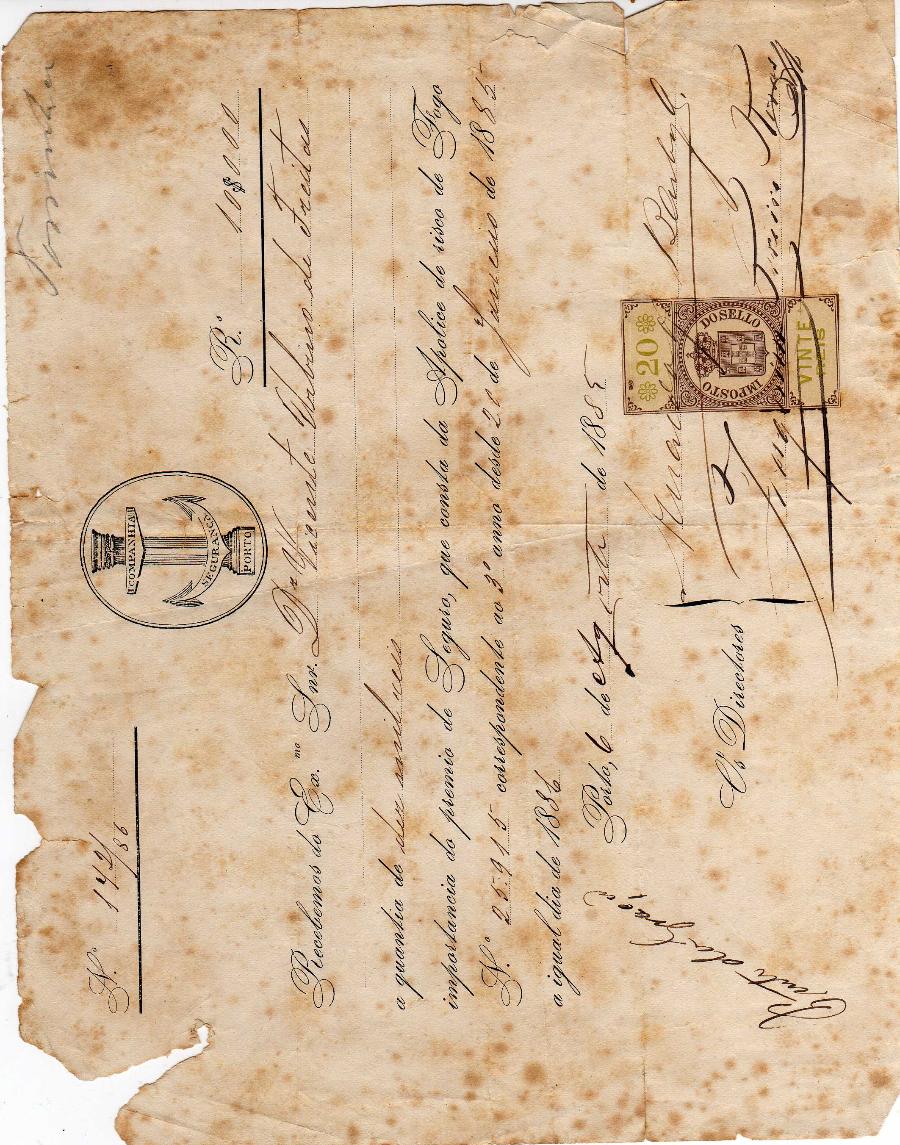 N.º 142/86
COMPANHIA
SEGURANÇA
PORTO
R.s 10$000
Recebemos do Ex.mo Snr. Dr. Vicente Urbino de Freitas
a quantia de dez mil reis
importancia do premio de Seguro, que consta da Apolice de risco de Fogo
N.º 25915 correspondente ao 3º anno desde 20 de Junho de 1885
a igual dia de 1886
Porto, 6 de Agosto de 1885
Os Directores
20
IMPOSTO DO SELLO
VINTE
REIS